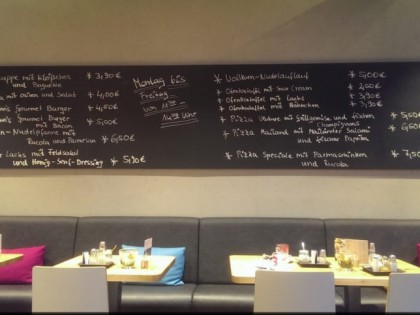 suppe mit Klößchen
und Baguette * 3,90€
mit und Salat * 4,00€
Gourmet Burger * 4,50€
Gourmet Burger
mit Bacon * 5,00€
Nudelpfanne mit
Rucola und Parmesan * 6,50€
Lachs mit Feldsalat
und Honig-Senf-Dressing * 5,90€
Montag bis
Freitag
von
Uhr
* Vollkorn-Nudelauflauf * 5,00€
* Ofenkartoffel mit Sour Cream * 2,00€
* Ofenkartoffel mit Lachs * 3,90€
* Ofenkartoffel mit Hähnchen * 3,90€
* Pizza mit und frischen
Champignons
* Pizza Mailand mit Mailänder Salami
und frischer Paprika
* Pizza Speciale mit Parmaschinken
und Rucola